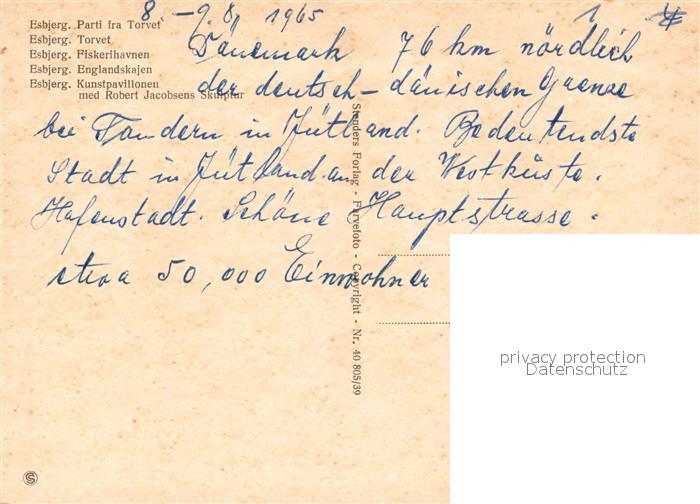 8.-9.8. 1965
Esbjerg. Parti fra Torvet
Esbjerg. Torvet
Esbjerg. Fiskerihavnen
Esbjerg. Englandskajen
Esbjerg. Kunstpavillonen
med Robert Jacobsens Skulptur
Dänemark 76 km nördlich
der deutsch-dänischen Grenze
bei Tondern in Jütland. Bedeutendste
Stadt in Jütland an der Westküste.
Hafenstadt. Schöne Hauptstrasse.
etwa 50,000 Einwohner
Stenders Forlag - Farvefoto - Copyright - Nr. 40 805/39
privacy protection
Datenschutz
S